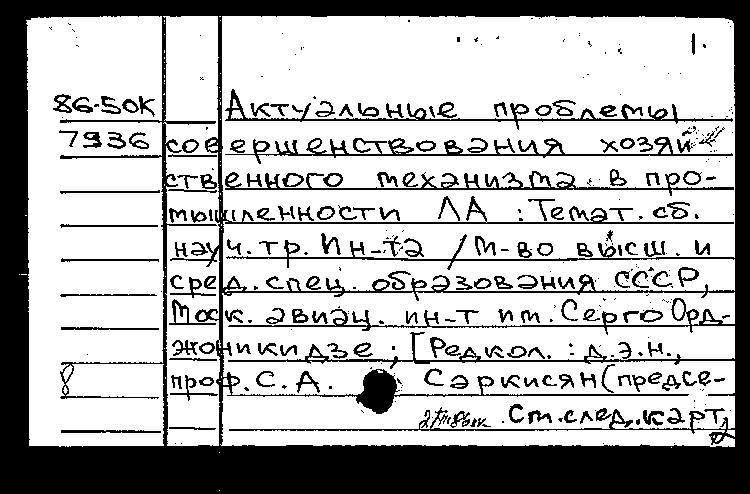 1.
86-50К Актуальные проблемы
7936 совершенствования хозяй
ственного механизма в про-
мышленности ЛА : Темат. сб.
науч. тр. Ин-та / М-во высш. и
сред. спец. образования СССР,
Моск. авиац. ин-т им. Серго Орд-
жоникидзе ; [Редкол. : д.э.н.,
8 проф. С.А. Саркисян (предсе-
См. след. карт.
2